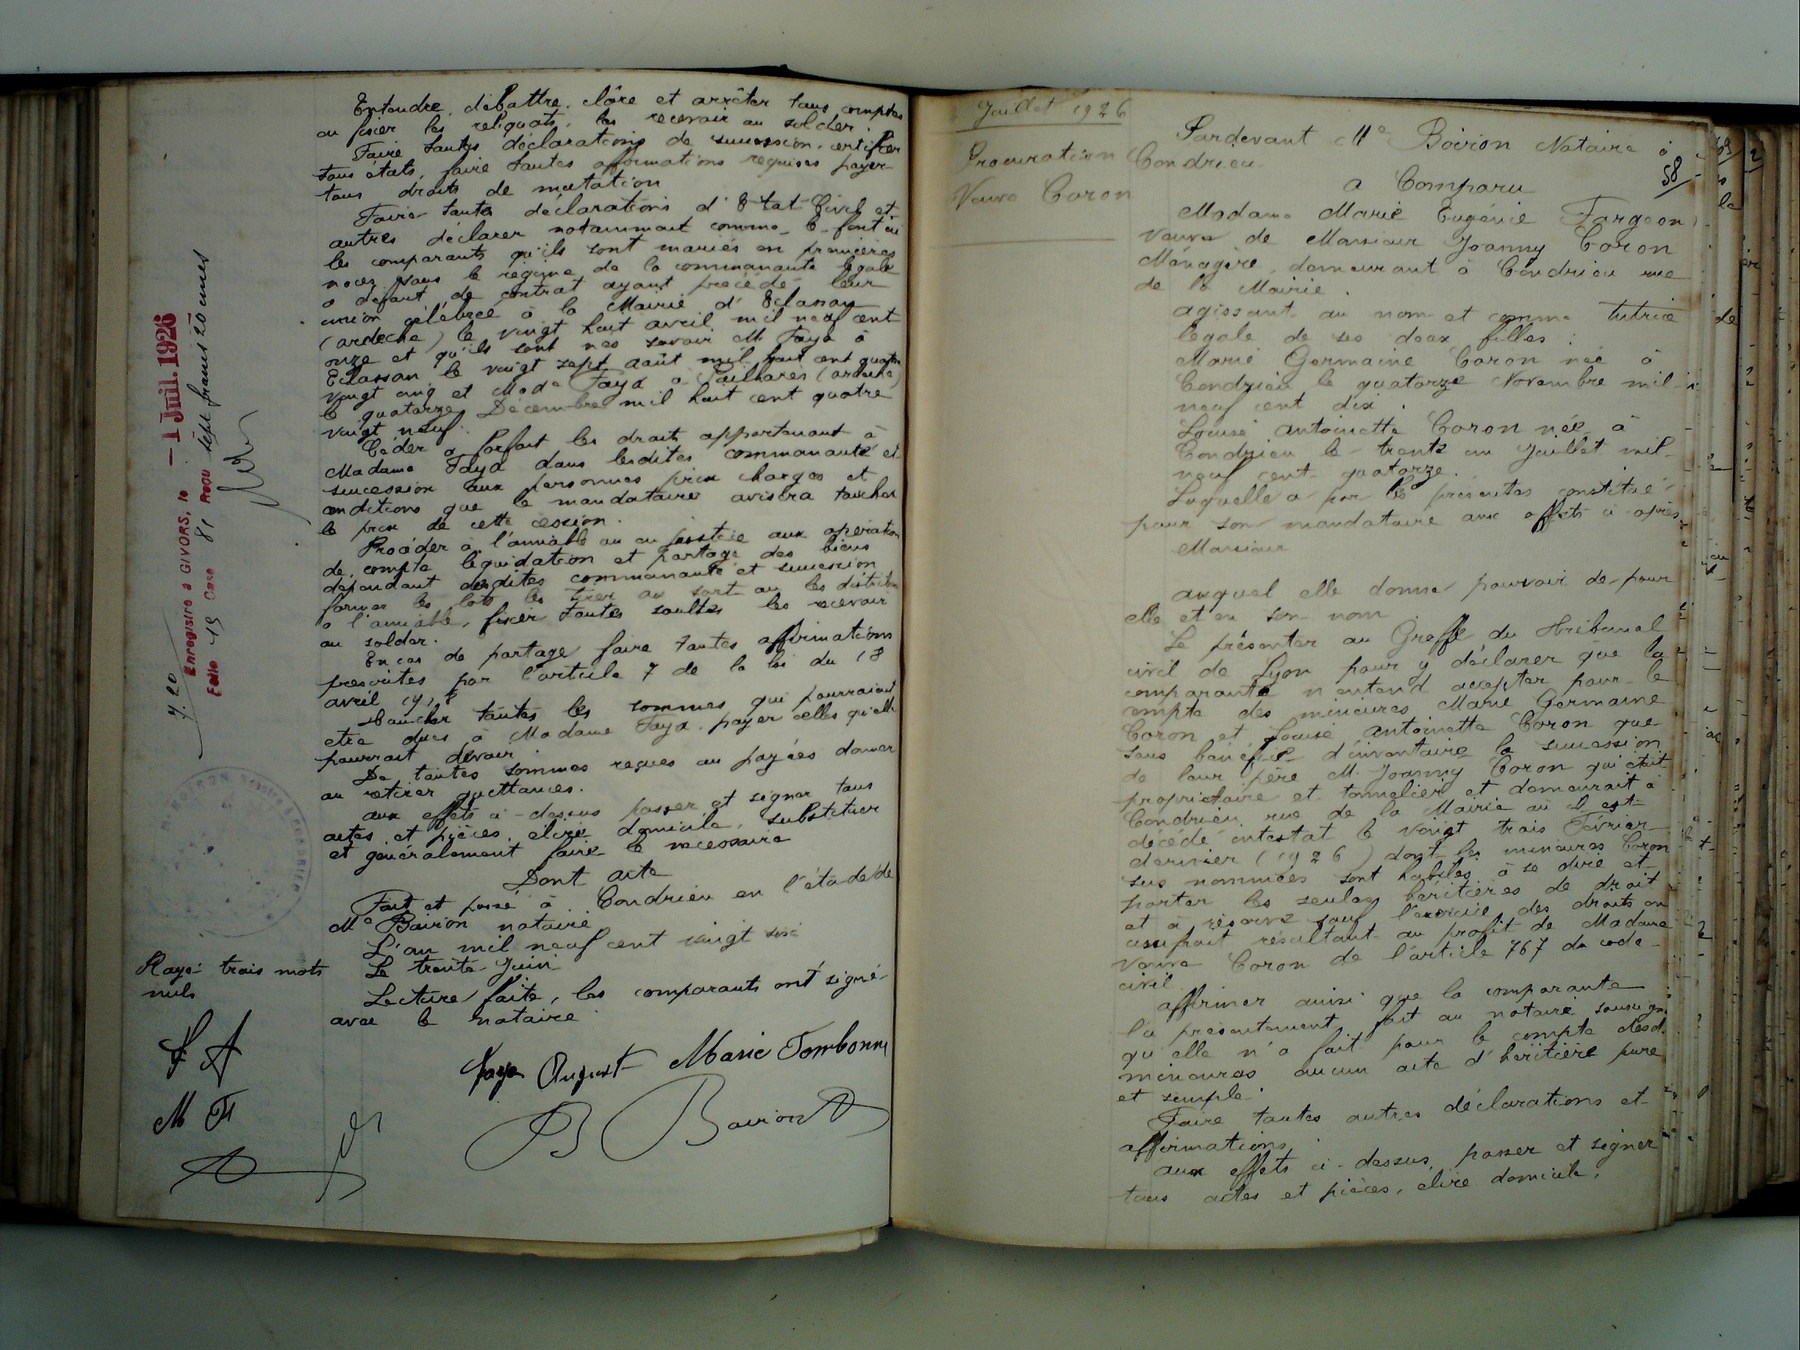 Entendre, débattre, clôre et arrêter tous comptes
en fixer les reliquats, les recevoir ou solder.
Faire toutes déclarations de succession, certifier
tous états, faire toutes affirmations requises payer
tous droits de mutation
Faire toutes déclarations d'Etat Civil et
autres déclarer notamment comme le font ici
les comparants qu'ils sont mariés en premières
noces sous le régime de la communauté légale
à défaut de contrat ayant précédé leur
union célébrée à la Mairie d'Eclassan
(ardèche) le vingt huit avril mil neuf cent
onze et qu'ils sont nés savoir M Faya à
Eclassan le vingt sept août mil huit cent quatre
vingt cinq et Made Faya à Pailharès (ardèche)
le quatorze Décembre mil huit cent quatre
vingt neuf.
Céder à forfait les droits appartenant à
Madame Faya dans lesdites communauté et
succession aux personnes prix charges et
conditions que le mandataire avisera toucher
le prix de cette cession.
Procéder à l'amiable ou en justice aux opérations
de compte liquidation et partage des biens
dépendant desdites communauté et succession
former les lots les tirer au sort ou les distribuer
à l'amiable, fixer toutes soultes les recevoir
ou solder.
En cas de partage faire toutes affirmations
prescrites par l'article 7 de la loi du 18
avril 1918
Toucher toutes les sommes qui pourraient
etre dues à Madame Faya, payer celles qu'elle
pourrait devoir.
De toutes sommes reçues ou payées donner
ou retirer quittances.
aux effets ci-dessus passer et signer tous
actes et pièces, elire domicile, substituer
et généralement faire le nécessaire
Dont acte
Fait et passé à Condrieu en l'étude de
Me Boiron notaire
L'an mil neuf cent vingt six
Le trente Juin
Lecture faite, les comparants ont signé
avec le notaire
Faya August Marie Tombonne
Boiron
Rayé trois mots
nuls
F A
M F
7.20
Enregistré à GIVORS, le -1 Juil. 1926
Folio 19 Case 81 Reçu sept francs 20 cmes
Juillet 1926
Procuration
Veuve Coron
58
Pardevant Me Boiron Notaire à
Condrieu
a Comparu
Madame Marie Eugénie Fargeon
veuve de Monsieur Joanny Coron
Ménagère, demeurant à Condrieu rue
de la Mairie.
agissant au nom et comme tutrice
légale de ses deux filles :
Marie Germaine Coron née à
Condrieu le quatorze Novembre mil
neuf cent dix.
Louise Antoinette Coron née à
Condrieu le trente un Juillet mil
neuf cent quatorze.
Laquelle a par les présentes constitué
pour son mandataire aux effets ci-après
Monsieur
auquel elle donne pouvoir de pour
elle et en son nom
Se présenter au Greffe du tribunal
civil de Lyon pour y déclarer que la
comparante n'entend accepter pour le
compte des mineures Marie Germaine
Coron et Louise Antoinette Coron que
sous bénéfice d'inventaire la succession
de leur père M. Joanny Coron qui était
propriétaire et tonnelier et demeurait à
Condrieu rue de la Mairie où il est
décédé intestat le vingt trois Février
dernier (1926) dont les mineures Coron
sus nommées sont habiles à se dire et
porter les seules héritières de droit
et à réserve sauf l'exercice des droits en
usufruit résultant au profit de Madame
veuve Coron de l'article 767 du code
civil.
affirmer ainsi que la comparante
l'a présentement fait au notaire soussigné
qu'elle n'a fait pour le compte desd.
mineures aucun acte d'héritière pure
et simple.
Faire toutes autres déclarations et
affirmations.
aux effets ci-dessus, passer et signer
tous actes et pièces, elire domicile,